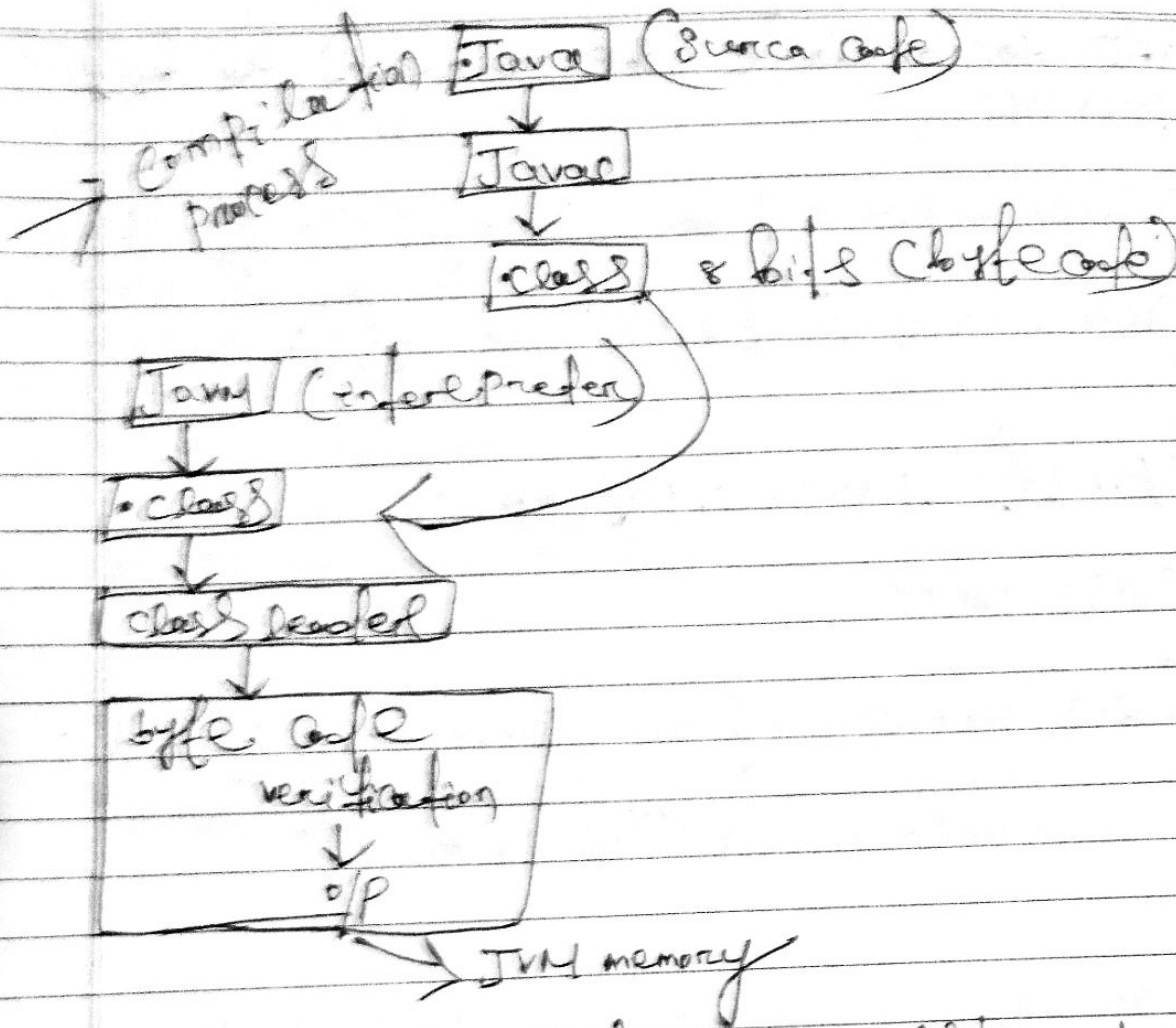 Compilation
process
.Java (Surca code)
Javac
.class 8 bits (bytecode)
Java (interepreter)
.class
class loader
byte code
verification
o/p
JVM memory